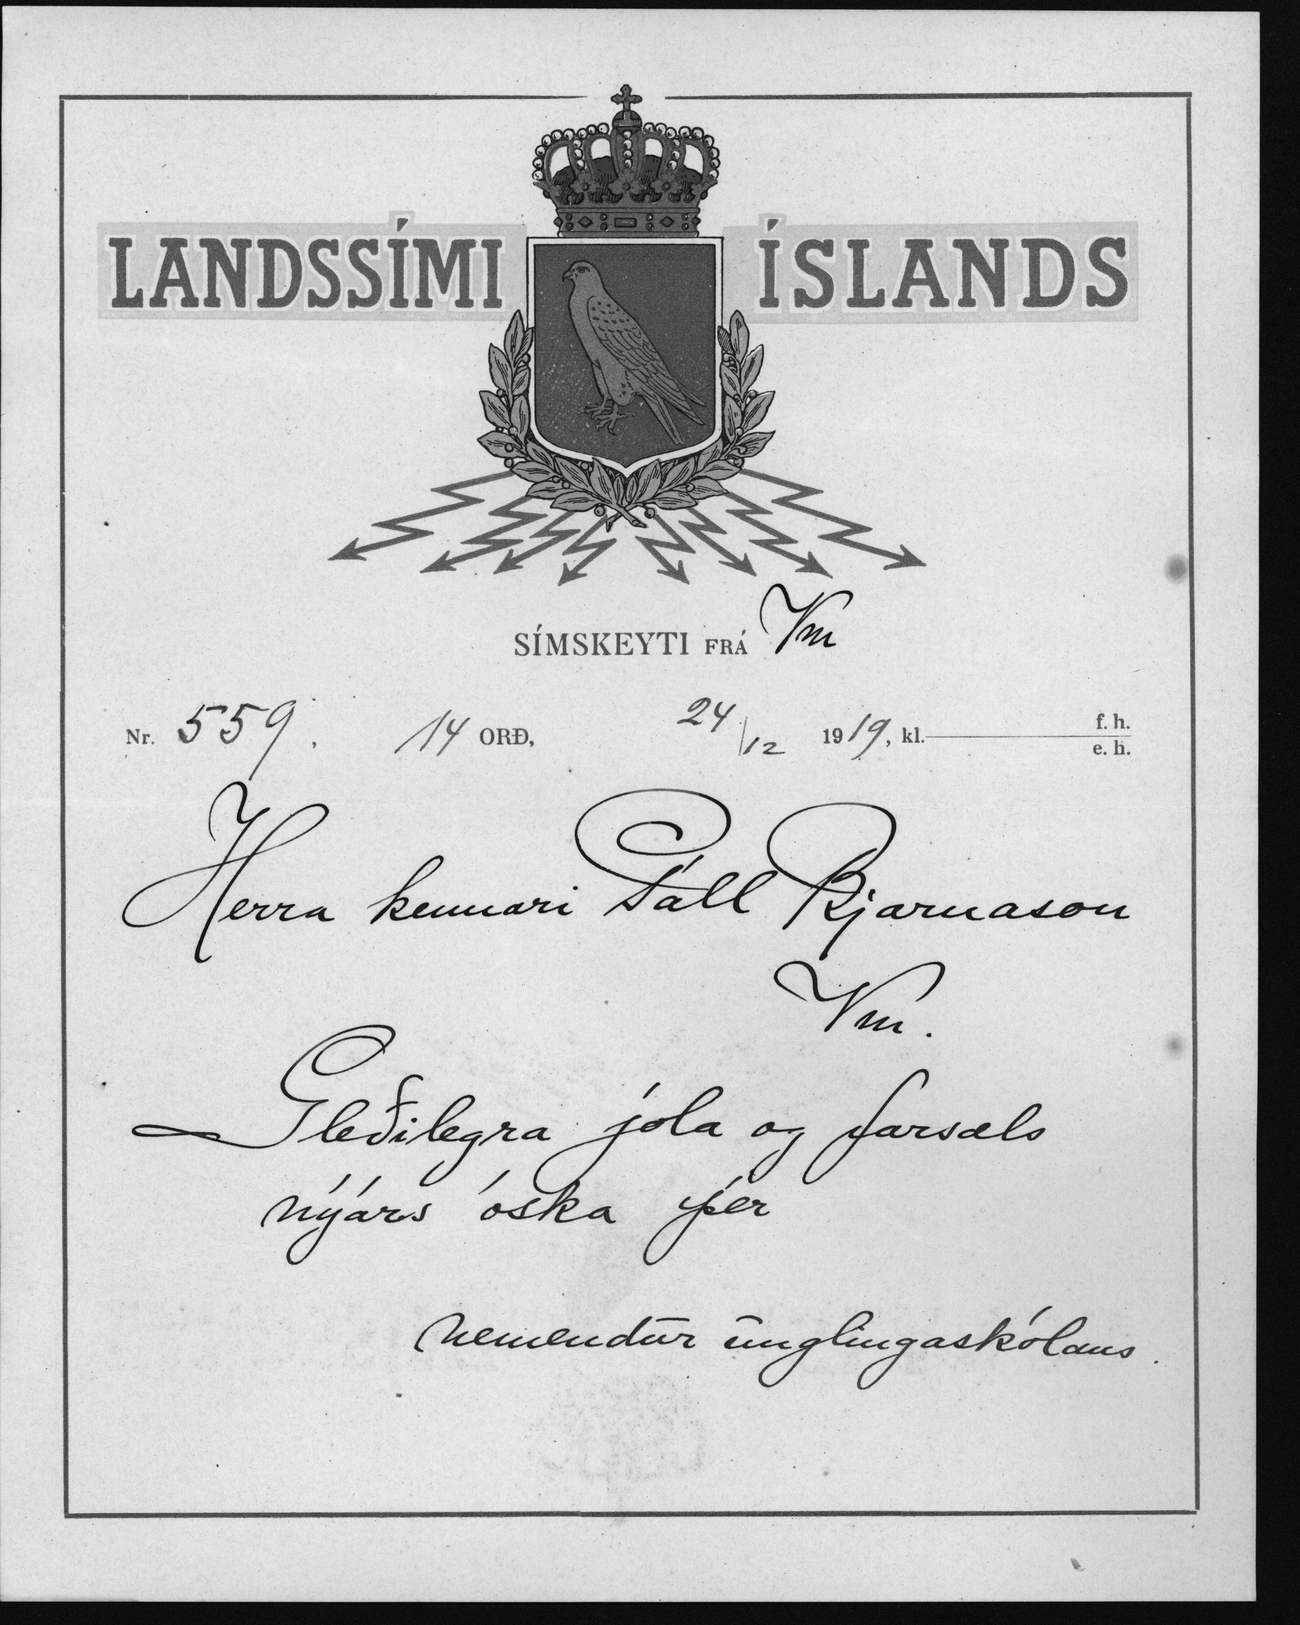 LANDSSÍMI ÍSLANDS
SÍMSKEYTI FRÁ Vm
Nr. 559, 14 ORÐ, 24/12 1919, kl. f. h. e. h.
Herra kennari Páll Bjarnason
Vm.
Gleðilegra jóla og farsæls
nýárs óska þér
nemendur unglingaskólans.